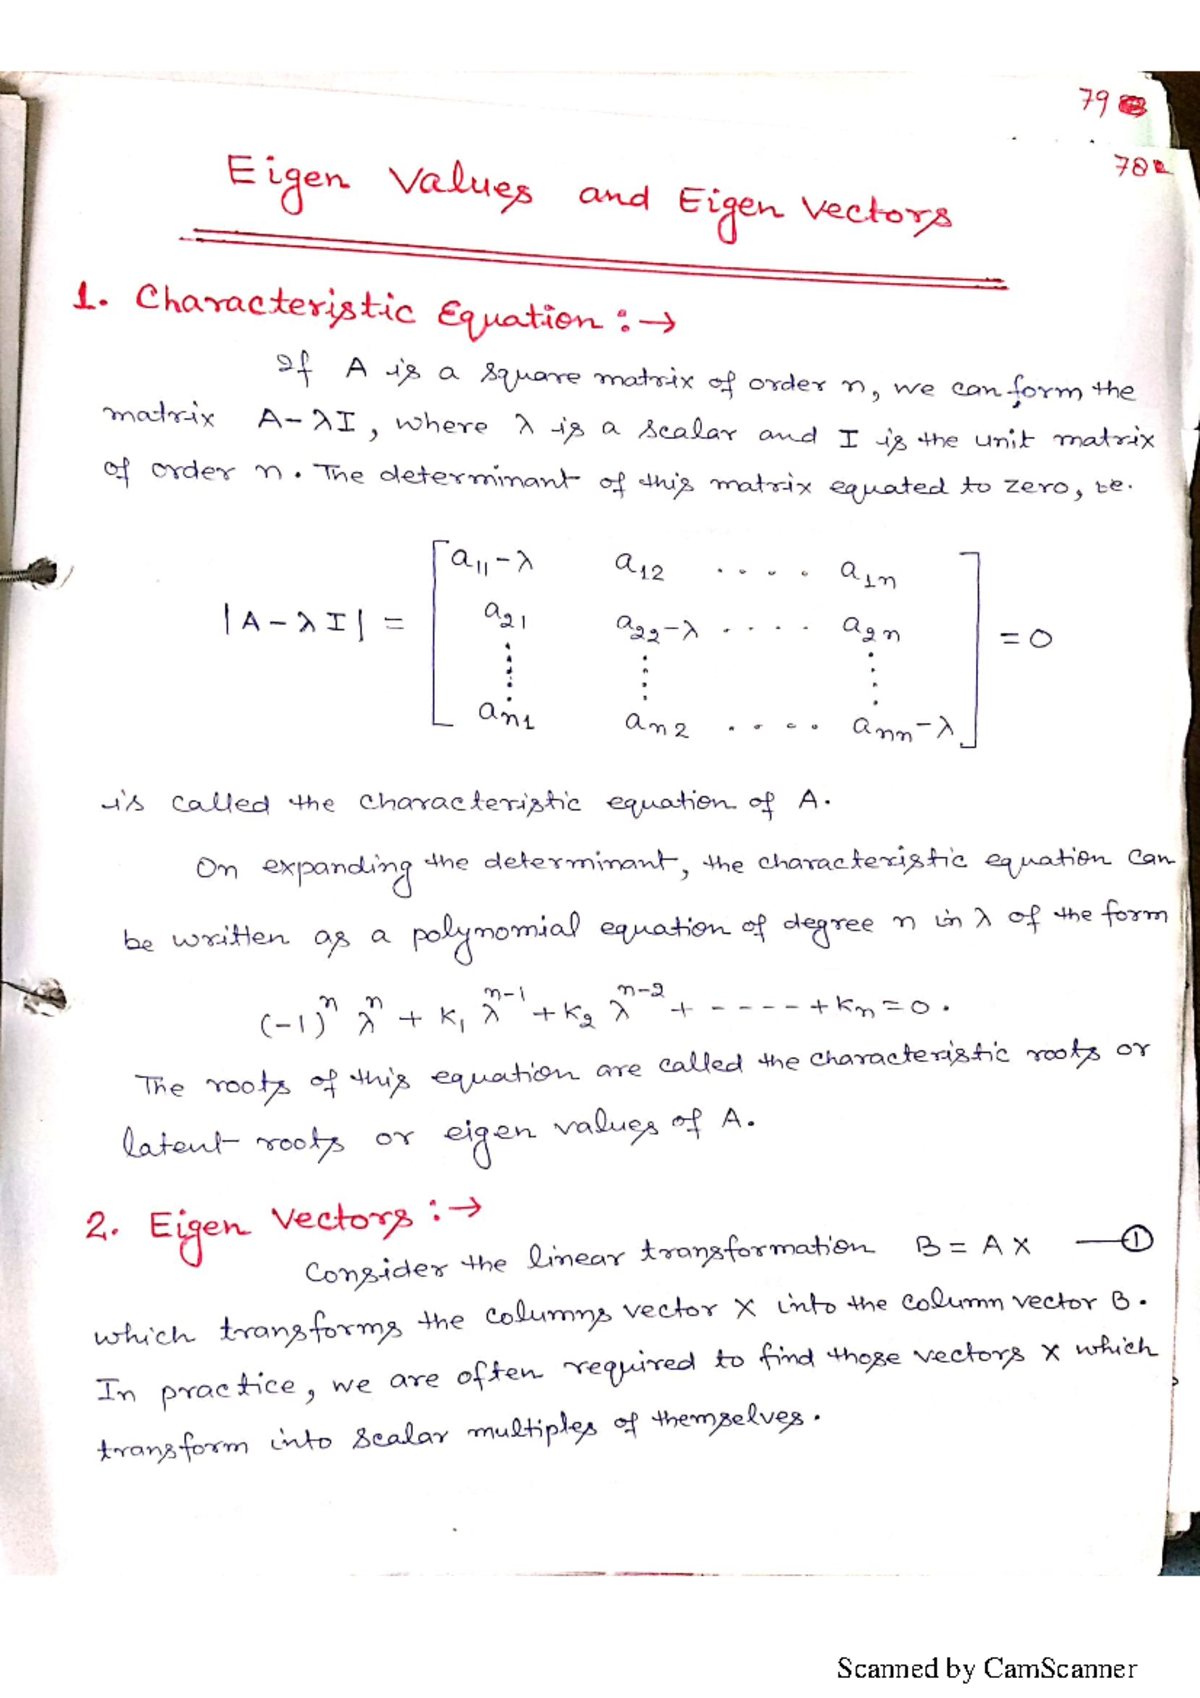 79
78
Eigen Values and Eigen Vectors
1. Characteristic Equation :→
If A is a square matrix of order n, we can form the
matrix A-λI, where λ is a scalar and I is the unit matrix
of order n. The determinant of this matrix equated to zero, i.e.
|A-λI| = [a₁₁-λ a₁₂ .... a₁ₙ
a₂₁ a₂₂-λ .... a₂ₙ
⋮ ⋮ ⋮
aₙ₁ aₙ₂ .... aₙₙ-λ] = 0
is called the characteristic equation of A.
On expanding the determinant, the characteristic equation can
be written as a polynomial equation of degree n in λ of the form
(-1)ⁿ λⁿ + K₁ λⁿ⁻¹ + K₂ λⁿ⁻² + ----- + Kₙ = 0.
The roots of this equation are called the characteristic roots or
latent roots or eigen values of A.
2. Eigen Vectors :→
Consider the linear transformation B = AX —①
which transforms the columns vector X into the column vector B.
In practice, we are often required to find those vectors X which
transform into scalar multiples of themselves.
Scanned by CamScanner